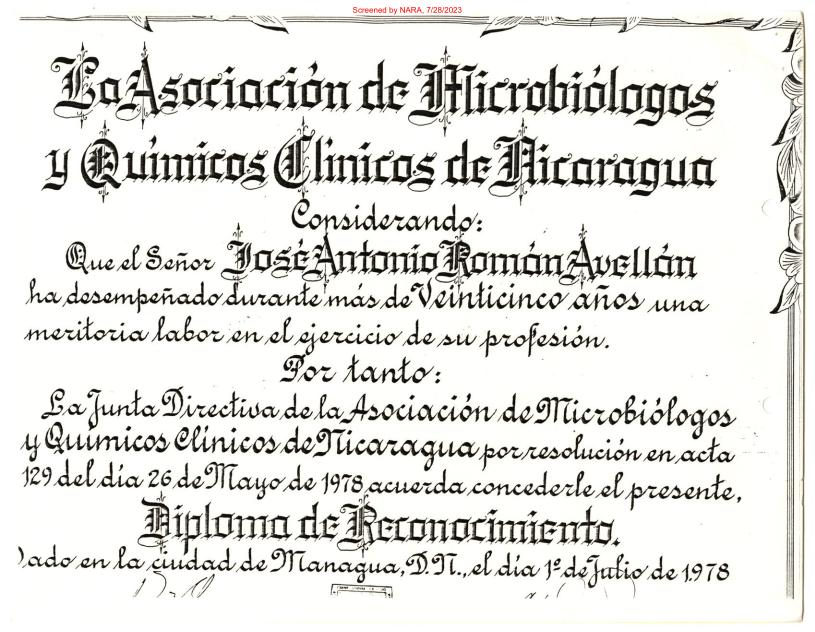 Screened by NARA, 7/28/2023
La Asociación de Microbiólogos
y Químicos Clínicos de Nicaragua
Considerando:
Que el Señor José Antonio Román Avellán
ha desempeñado durante más de Veinticinco años una
meritoria labor en el ejercicio de su profesión.
Por tanto:
La Junta Directiva de la Asociación de Microbiólogos
y Químicos Clínicos de Nicaragua por resolución en acta
129 del día 26 de Mayo de 1978 acuerda concederle el presente,
Diploma de Reconocimiento.
ado en la ciudad de Managua, D.N., el día 1º de Julio de 1978